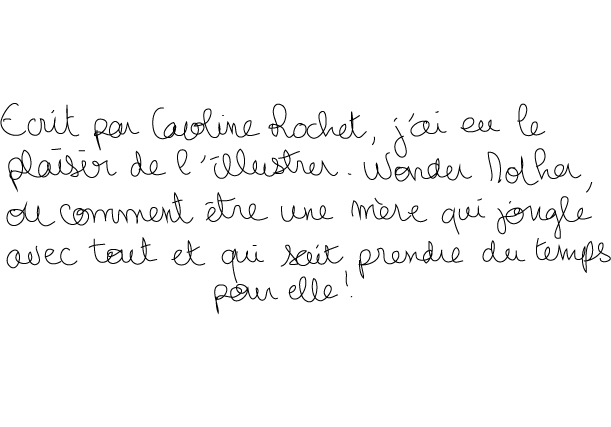 Ecrit par Caroline Rochet, j'ai eu le
plaisir de l'illustrer. Wonder Mother,
ou comment être une mère qui jongle
avec tout et qui sait prendre du temps
pour elle!